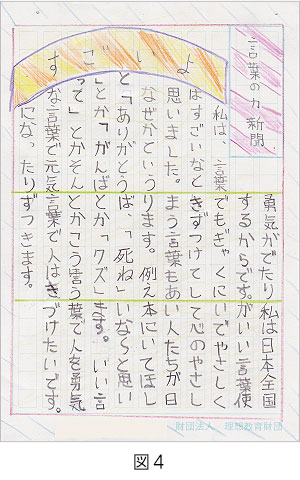 言葉の力 新聞
すごいよ
私は、言葉
はすごいなと
思いました。
なぜかという
と「ありがとう
」とか「がんば
って」とかそん
な言葉で元気
になったり
勇気がでたり
するからです。
でもぎゃくに
きずつけてし
まう言葉もあ
ります。例え
ば、「死ね」
とか「クズ」
とかこう言う
言葉で人はき
ずつきます。
私は日本全国
がいい言葉使
いでやさしく
て心のやさし
い人たちが日
本にいてほし
いなと思い
ます。いい言
葉で人を勇気
づけたいです。
財団法人 理想教育財団
図4